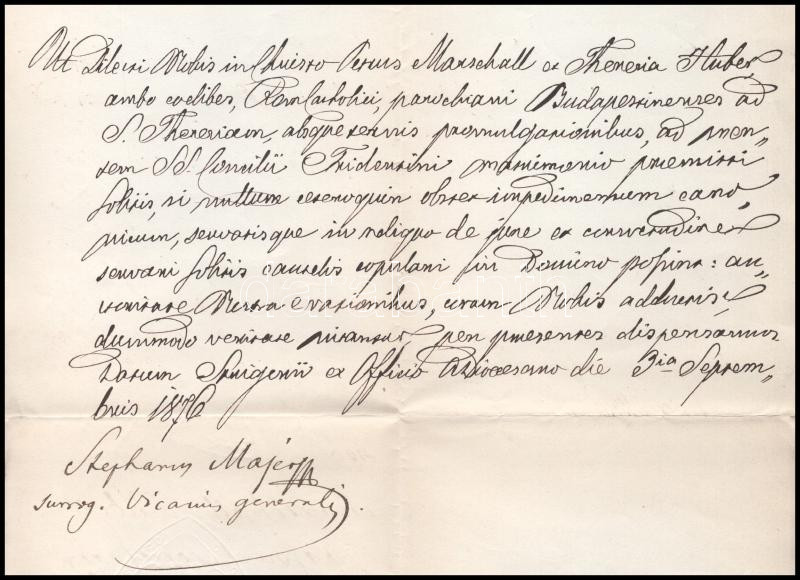 Ut Dilecti Nobis in Christo Petrus Marschall et Theresia Huber
ambo coelibes, Rom. Catholici, parochiani Budapestinenses ad
S. Theresiam, absque ternis promulgationibus, ad men-
tem SS. Concilii Tridentini matrimonio praemitti
solitis, si nullum ceteroquin obstet impedimentum cano-
nicum, servatisque in reliquo de jure et consvetudine
servari solitis cautelis copulari in Domino possint: au-
ctoritate Nostra e rationibus, coram Nobis adductis,
dummodo veritate nitantur, per praesentes dispensamus
Datum Strigonii ex Officio Adiocesano die 3ia Septem-
bris 1876
Stephanus Majer
surrog. Vicarius generalis